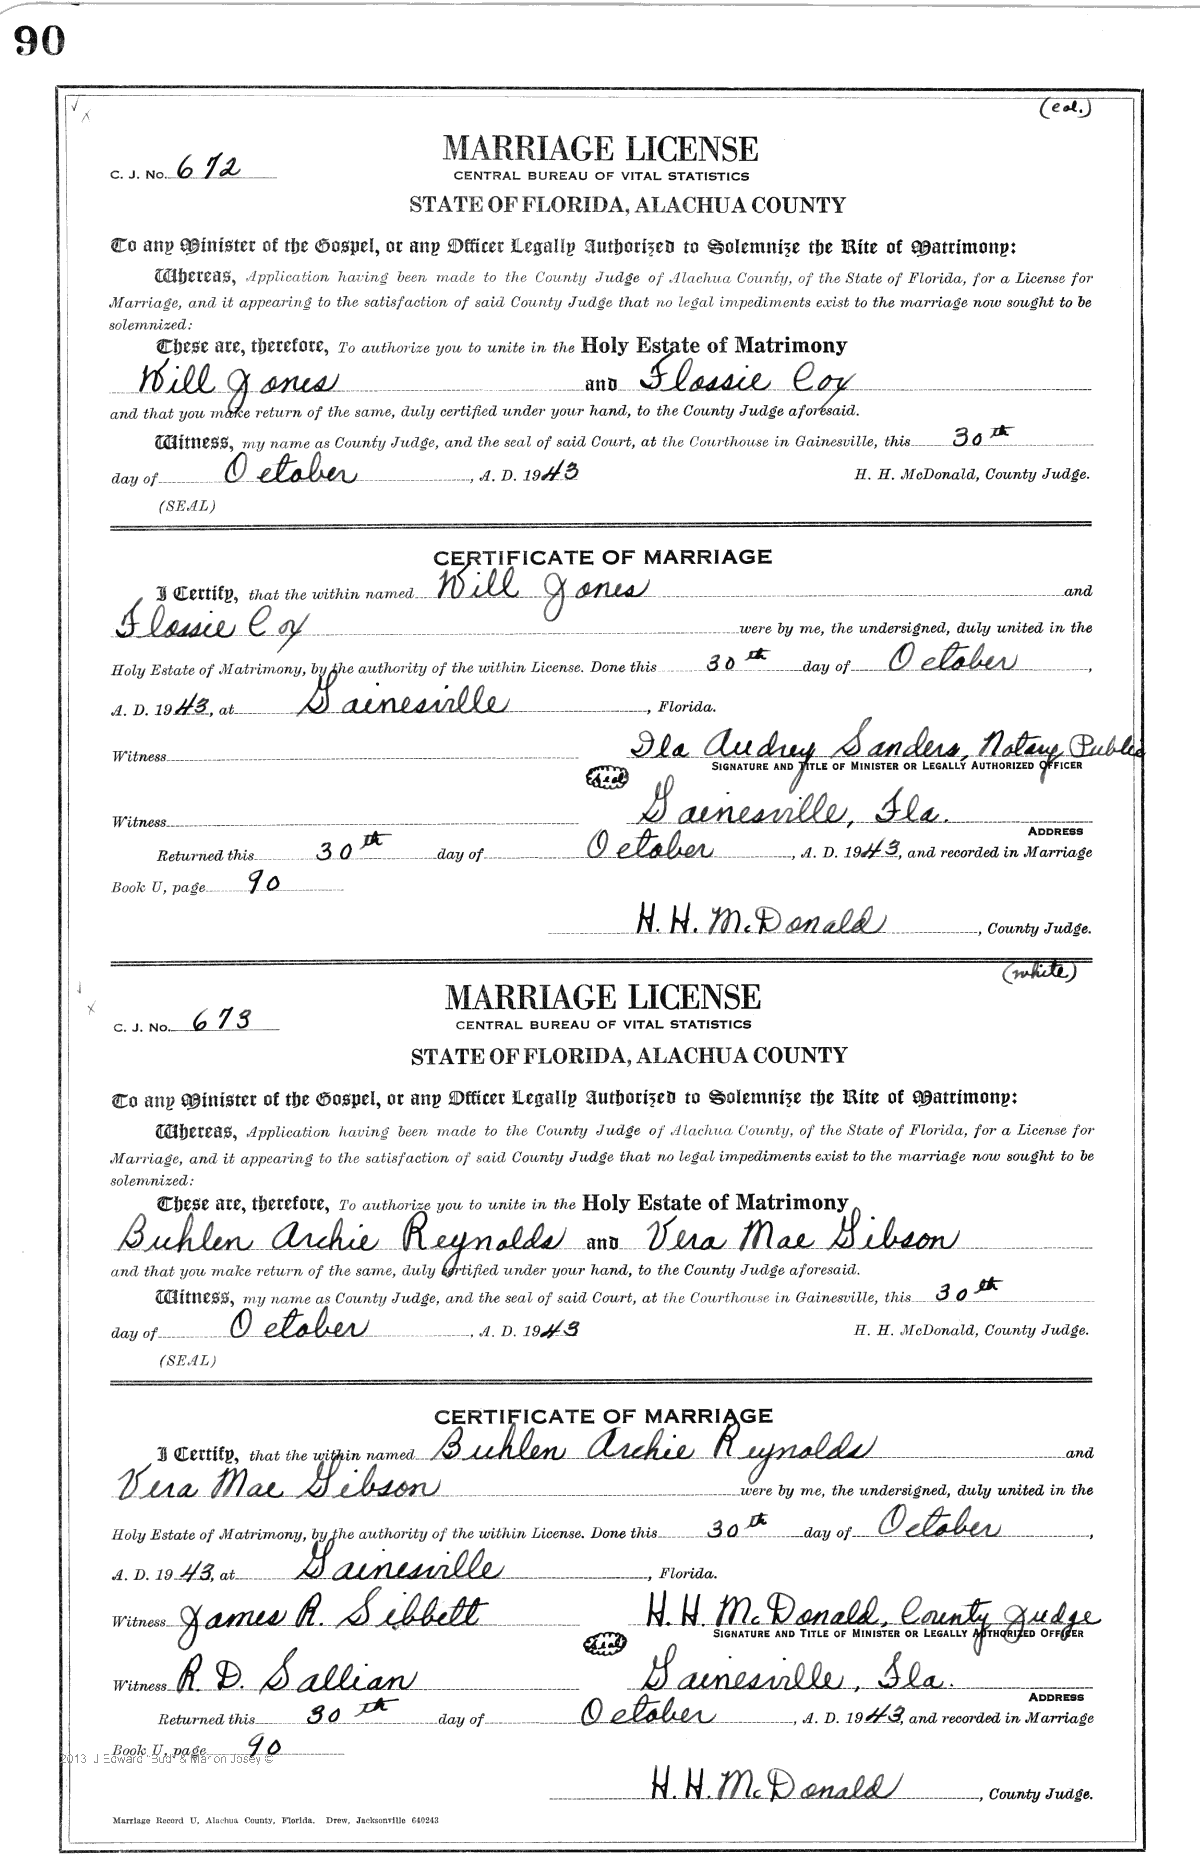 90
(col.)
MARRIAGE LICENSE
C. J. No. 672
CENTRAL BUREAU OF VITAL STATISTICS
STATE OF FLORIDA, ALACHUA COUNTY
To any Minister of the Gospel, or any Officer Legally Authorized to Solemnize the Rite of Matrimony:
Whereas, Application having been made to the County Judge of Alachua County, of the State of Florida, for a License for
Marriage, and it appearing to the satisfaction of said County Judge that no legal impediments exist to the marriage now sought to be
solemnized:
These are, therefore, To authorize you to unite in the Holy Estate of Matrimony
Will Jones and Flossie Cox
and that you make return of the same, duly certified under your hand, to the County Judge aforesaid.
Witness, my name as County Judge, and the seal of said Court, at the Courthouse in Gainesville, this 30th
day of October, A. D. 1943 H. H. McDonald, County Judge.
(SEAL)
CERTIFICATE OF MARRIAGE
I Certify, that the within named Will Jones and
Flossie Cox were by me, the undersigned, duly united in the
Holy Estate of Matrimony, by the authority of the within License. Done this 30th day of October,
A. D. 1943, at Gainesville, Florida.
Witness Ila Audrey Sanders, Notary Public
SIGNATURE AND TITLE OF MINISTER OR LEGALLY AUTHORIZED OFFICER
Seal
Witness Gainesville, Fla.
ADDRESS
Returned this 30th day of October, A. D. 1943, and recorded in Marriage
Book U, page 90
H. H. McDonald, County Judge.
(white)
MARRIAGE LICENSE
C. J. No. 673
CENTRAL BUREAU OF VITAL STATISTICS
STATE OF FLORIDA, ALACHUA COUNTY
To any Minister of the Gospel, or any Officer Legally Authorized to Solemnize the Rite of Matrimony:
Whereas, Application having been made to the County Judge of Alachua County, of the State of Florida, for a License for
Marriage, and it appearing to the satisfaction of said County Judge that no legal impediments exist to the marriage now sought to be
solemnized:
These are, therefore, To authorize you to unite in the Holy Estate of Matrimony
Buhlen Archie Reynolds and Vera Mae Gibson
and that you make return of the same, duly certified under your hand, to the County Judge aforesaid.
Witness, my name as County Judge, and the seal of said Court, at the Courthouse in Gainesville, this 30th
day of October, A. D. 1943 H. H. McDonald, County Judge.
(SEAL)
CERTIFICATE OF MARRIAGE
I Certify, that the within named Buhlen Archie Reynolds and
Vera Mae Gibson were by me, the undersigned, duly united in the
Holy Estate of Matrimony, by the authority of the within License. Done this 30th day of October,
A. D. 1943, at Gainesville, Florida.
Witness James R. Sibbett H. H. McDonald, County Judge
SIGNATURE AND TITLE OF MINISTER OR LEGALLY AUTHORIZED OFFICER
Seal
Witness R. D. Sallian Gainesville, Fla.
ADDRESS
Returned this 30th day of October, A. D. 1943, and recorded in Marriage
Book U, page 90
2013 J Edward "Bud" & Marion Josey ©
H. H. McDonald, County Judge.
Marriage Record U, Alachua County, Florida. Drew, Jacksonville 640243